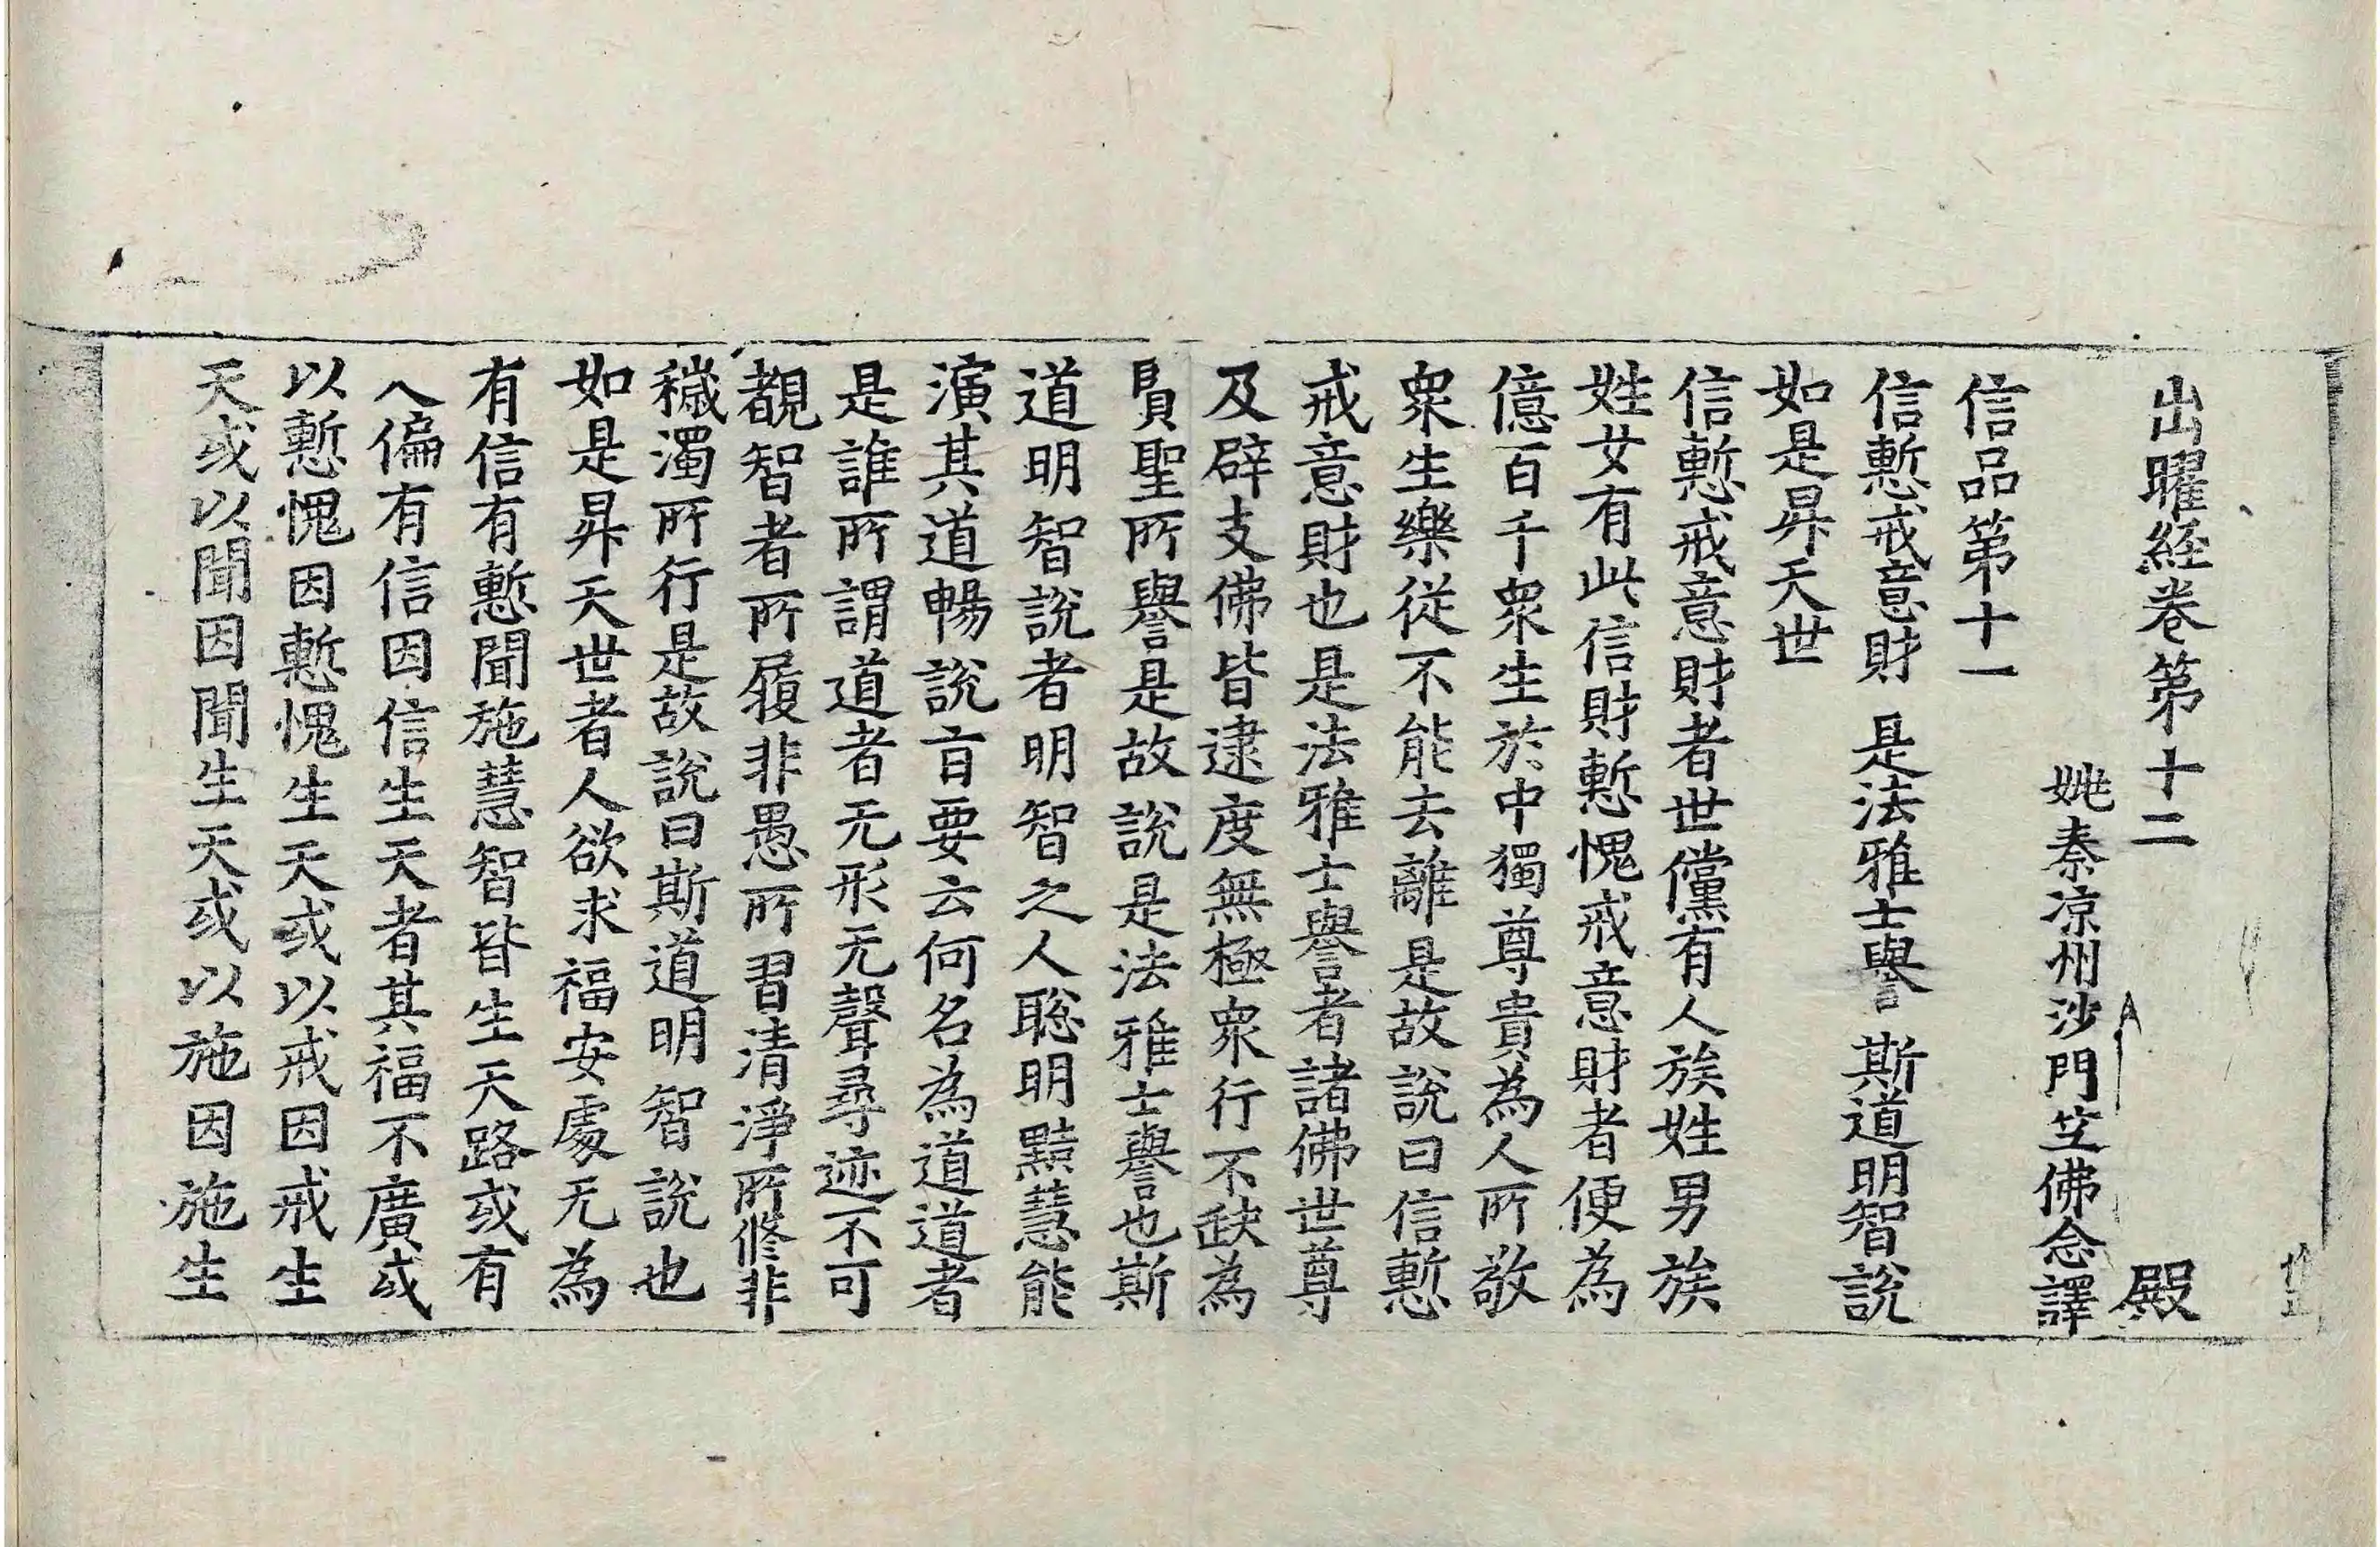 出曜經卷第十二 殿
姚秦涼州沙門竺佛念譯
信品第十一
信慙戒意財 是法雅士譽 斯道明智說
如是昇天世
信慙戒意財者世儻有人族姓男族
姓女有此信財慙愧戒意財者便為
億百千衆生於中獨尊貴為人所敬
衆生樂從不能去離是故說曰信慙
戒意財也是法雅士譽者諸佛世尊
及辟支佛皆逮度無極衆行不𮉼為
賢聖所譽是故說是法雅士譽也斯
道明智說者明智之人聡明黠慧能
演其道暢說盲要云何名為道道者
是誰所謂道者无形无聲尋迹不可
覩智者所履非愚所習清淨所修非
穢濁所行是故說曰斯道明智說也
如是昇天世者人欲求福安處无為
有信有慙聞施慧智皆生天路或有
人偏有信因信生天者其福不廣或
以慙愧因慙愧生天或以戒因戒生
天或以聞因聞生天或以施因施生